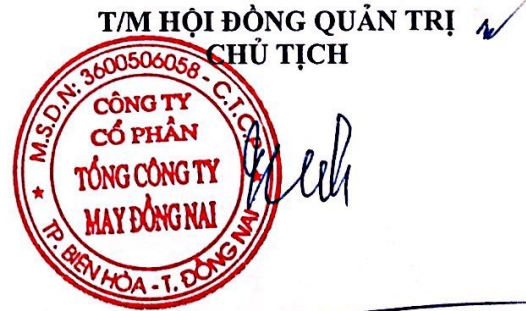 T/M HỘI ĐỒNG QUẢN TRỊ
CHỦ TỊCH
M.S.D.N: 3600506058 - C.T.C.P
CÔNG TY
CỔ PHẦN
TỔNG CÔNG TY
MAY ĐỒNG NAI
TP. BIÊN HÒA - T. ĐỒNG NAI